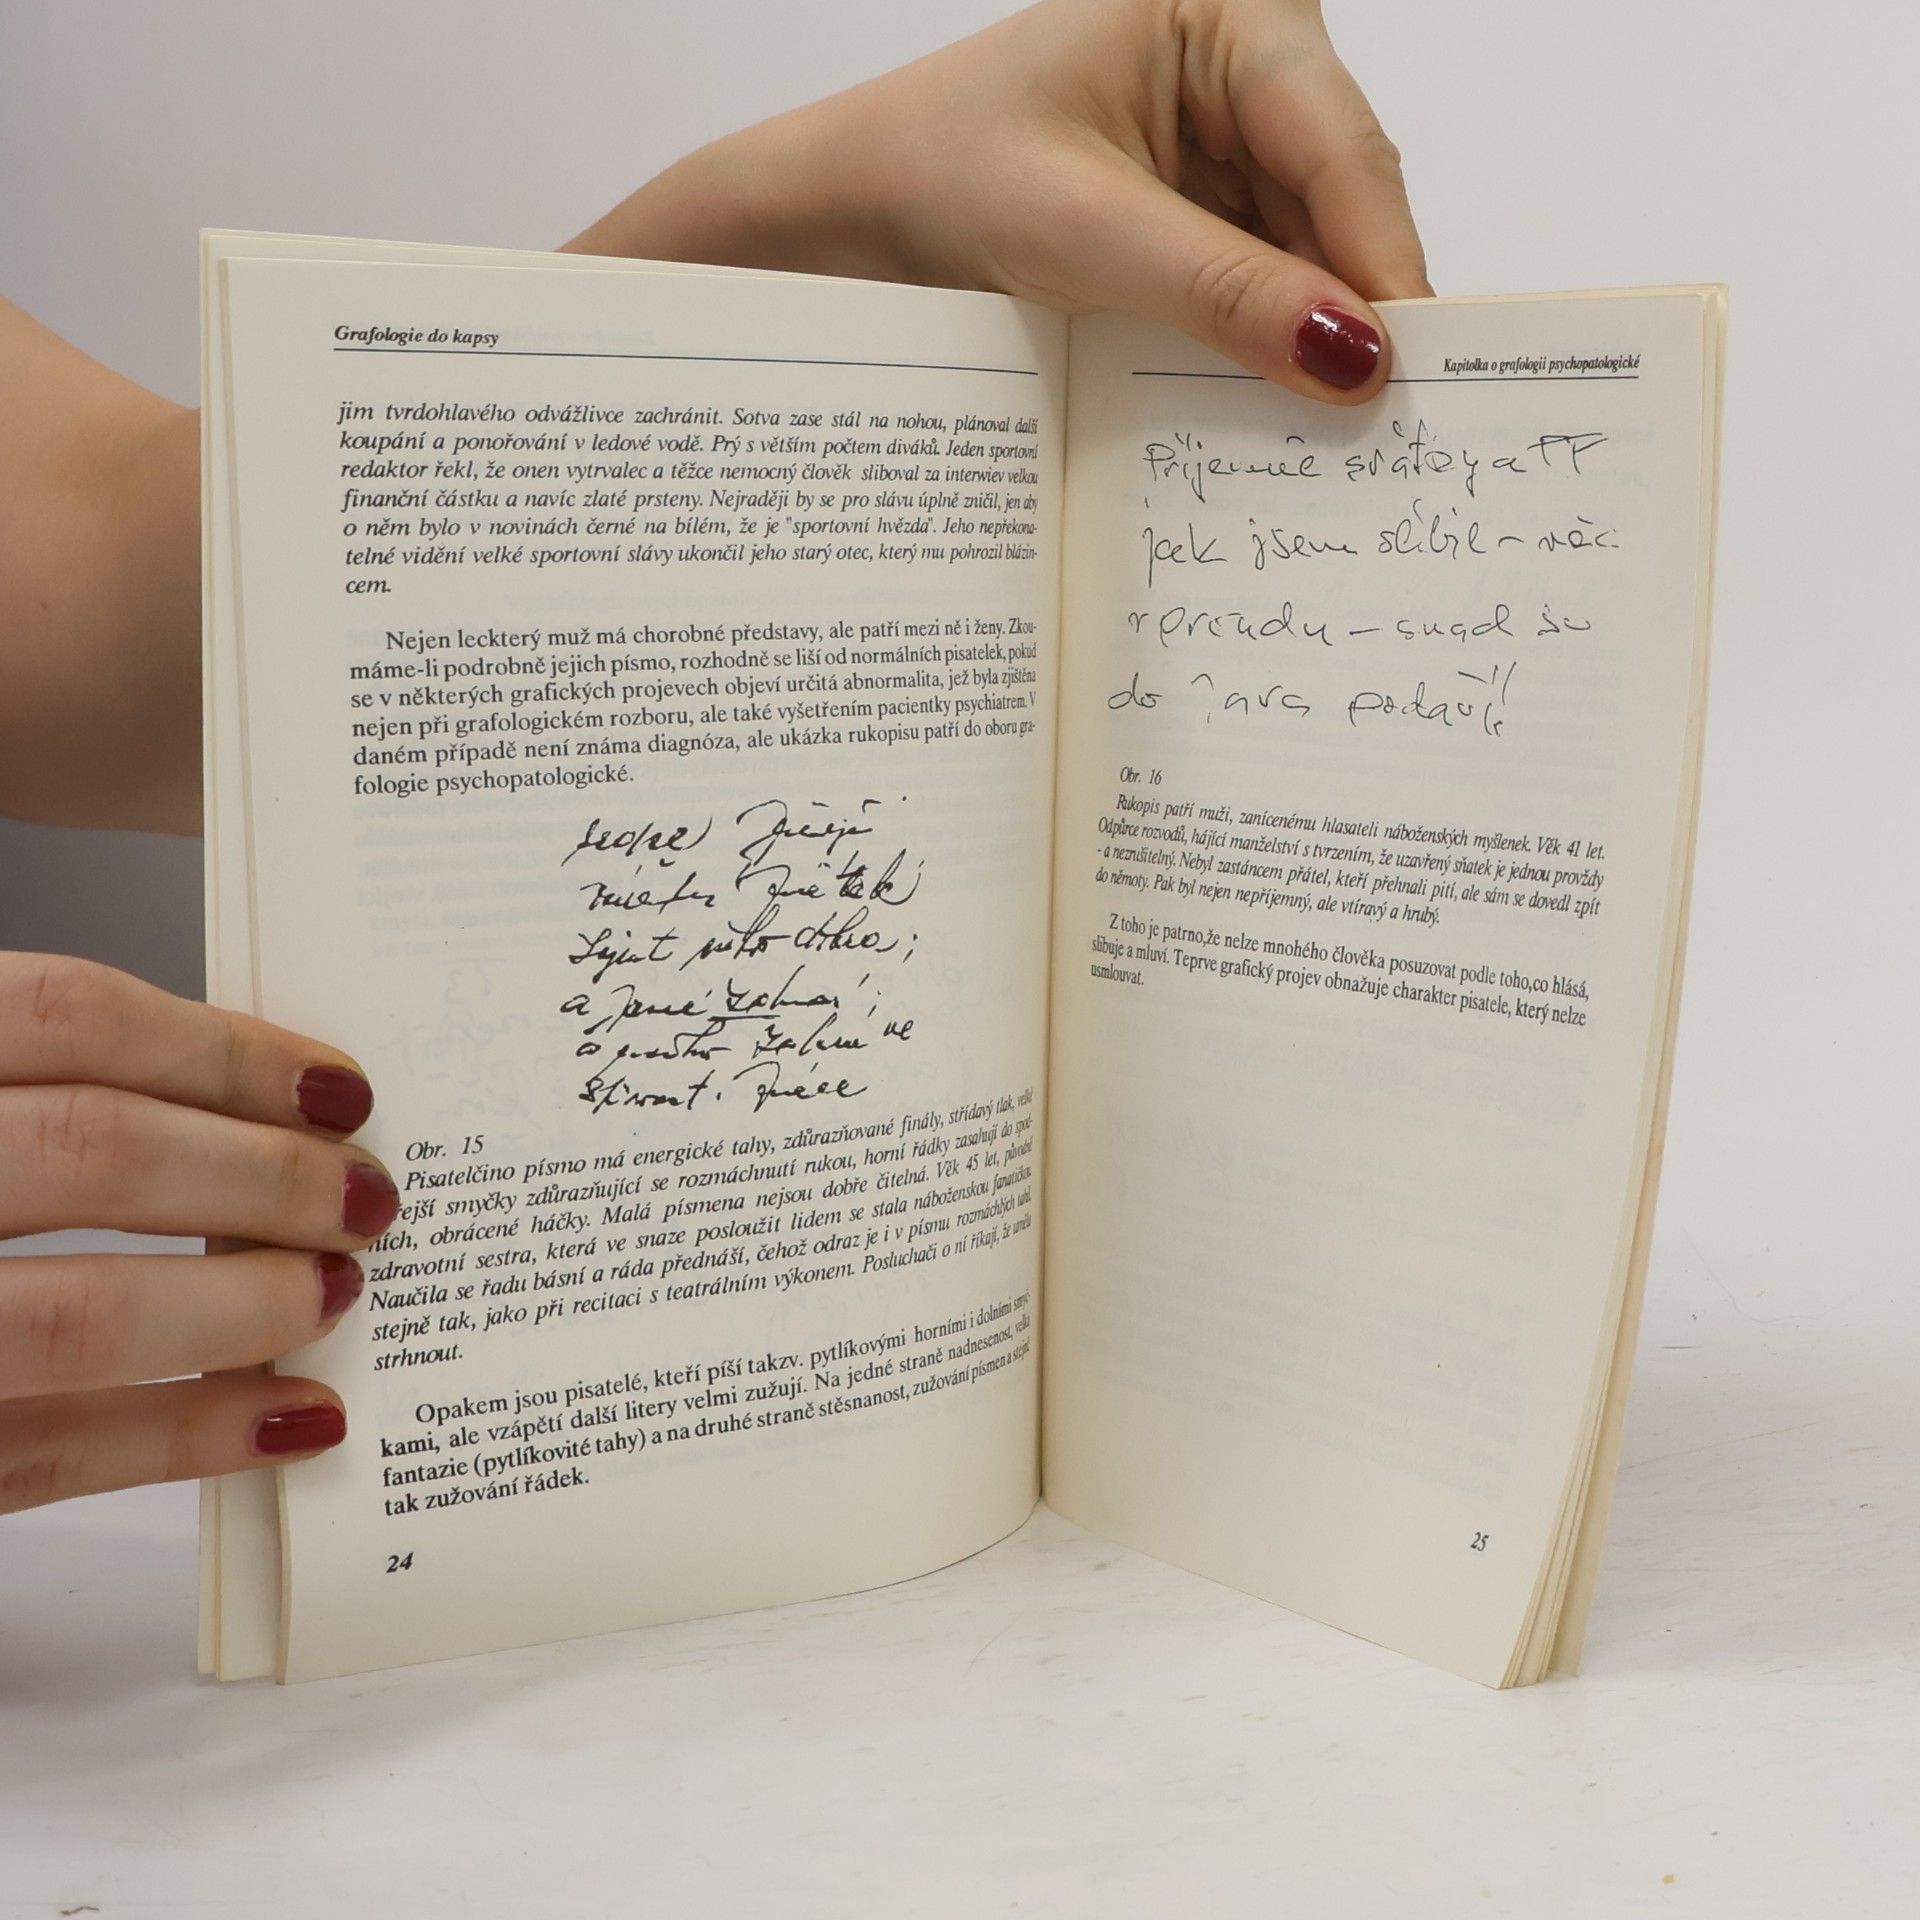 Grafologie do kapsy
jim tvrdohlavého odvážlivce zachránit. Sotva zase stál na nohou, plánoval další
koupání a ponořování v ledové vodě. Prý s větším počtem diváků. Jeden sportovní
redaktor řekl, že onen vytrvalec a těžce nemocný člověk sliboval za interwiev velkou
finanční částku a navíc zlaté prsteny. Nejraději by se pro slávu úplně zničil, jen aby
o něm bylo v novinách černé na bílém, že je "sportovní hvězda". Jeho nepřekona-
telné vidění velké sportovní slávy ukončil jeho starý otec, který mu pohrozil blázin-
cem.
Nejen leckterý muž má chorobné představy, ale patří mezi ně i ženy. Zkou-
máme-li podrobně jejich písmo, rozhodně se liší od normálních pisatelek, pokud
se v některých grafických projevech objeví určitá abnormalita, jež byla zjištěna
nejen při grafologickém rozboru, ale také vyšetřením pacientky psychiatrem. V
daném případě není známa diagnóza, ale ukázka rukopisu patří do oboru gra-
fologie psychopatologické.
tak
a
a ve
Obr. 15
Pisatelčino písmo má energické tahy, zdůrazňované finály, střídavý tlak, velké
smyčky zdůrazňující se rozmáchnutí rukou, horní řádky zasahují do spod-
ních, obrácené háčky. Malá písmena nejsou dobře čitelná. Věk 45 let, původně
zdravotní sestra, která ve snaze posloužit lidem se stala náboženskou fanatičkou.
Naučila se řadu básní a ráda přednáší, čehož odraz je i v písmu rozmáchlých tahů,
stejně tak, jako při recitaci s teatrálním výkonem. Posluchači o ní říkají, že uměla
strhnout.
Opakem jsou pisatelé, kteří píší takzv. pytlíkovými horními i dolními smyč-
kami, ale vzápětí další litery velmi zužují. Na jedné straně nadnesenost, velká
fantazie (pytlíkovité tahy) a na druhé straně stěsnanost, zužování písmen a stejně
tak zužování řádek.
24
Kapitolka o grafologii psychopatologické
Příjemné svátky a PF
jak jsem slíbil – věc
v proudu – snad se
do jara podaří
Obr. 16
Rukopis patří muži, zanícenému hlasateli náboženských myšlenek. Věk 41 let.
Odpůrce rozvodů, hájící manželství s tvrzením, že uzavřený sňatek je jednou provždy
- a nezrušitelný. Nebyl zastáncem přátel, kteří přehnali pití, ale sám se dovedl zpít
do němoty. Pak byl nejen nepříjemný, ale vtíravý a hrubý.
Z toho je patrno,že nelze mnohého člověka posuzovat podle toho,co hlásá,
slibuje a mluví. Teprve grafický projev obnažuje charakter pisatele, který nelze
usmlouvat.
25